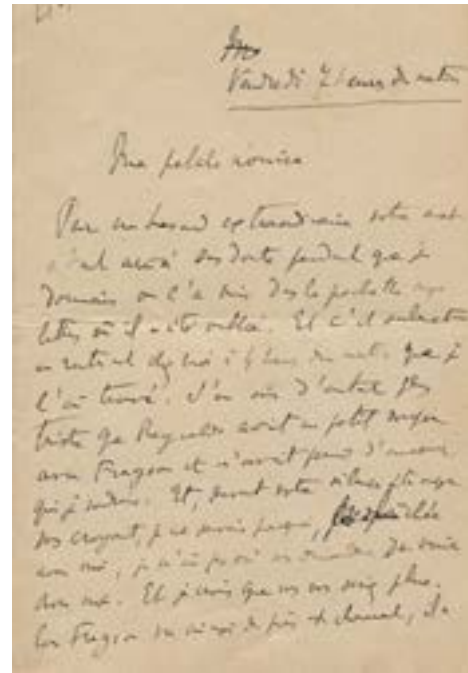 Vendredi 7 heures du matin
Ma petite
Par un hasard extraordinaire votre mot
arrivé sans doute pendant que je
dormais on l'a mis dans la pochette aux
lettres où il a été oublié. Et c'est seulement
en rentrant chez moi à 6 heures du matin que je
l'ai trouvé. J'en suis d'autant plus
triste que Reynaldo avait un petit
avec Fragson et m'avait d'amener
qui je voudrais. Et, devant votre silence
vous croyant, je ne savais pourquoi, fâchée
avec moi, je n'ai pas osé vous demander de venir
avec moi. Et je crois que vous vous seriez plu.
Car Fragson